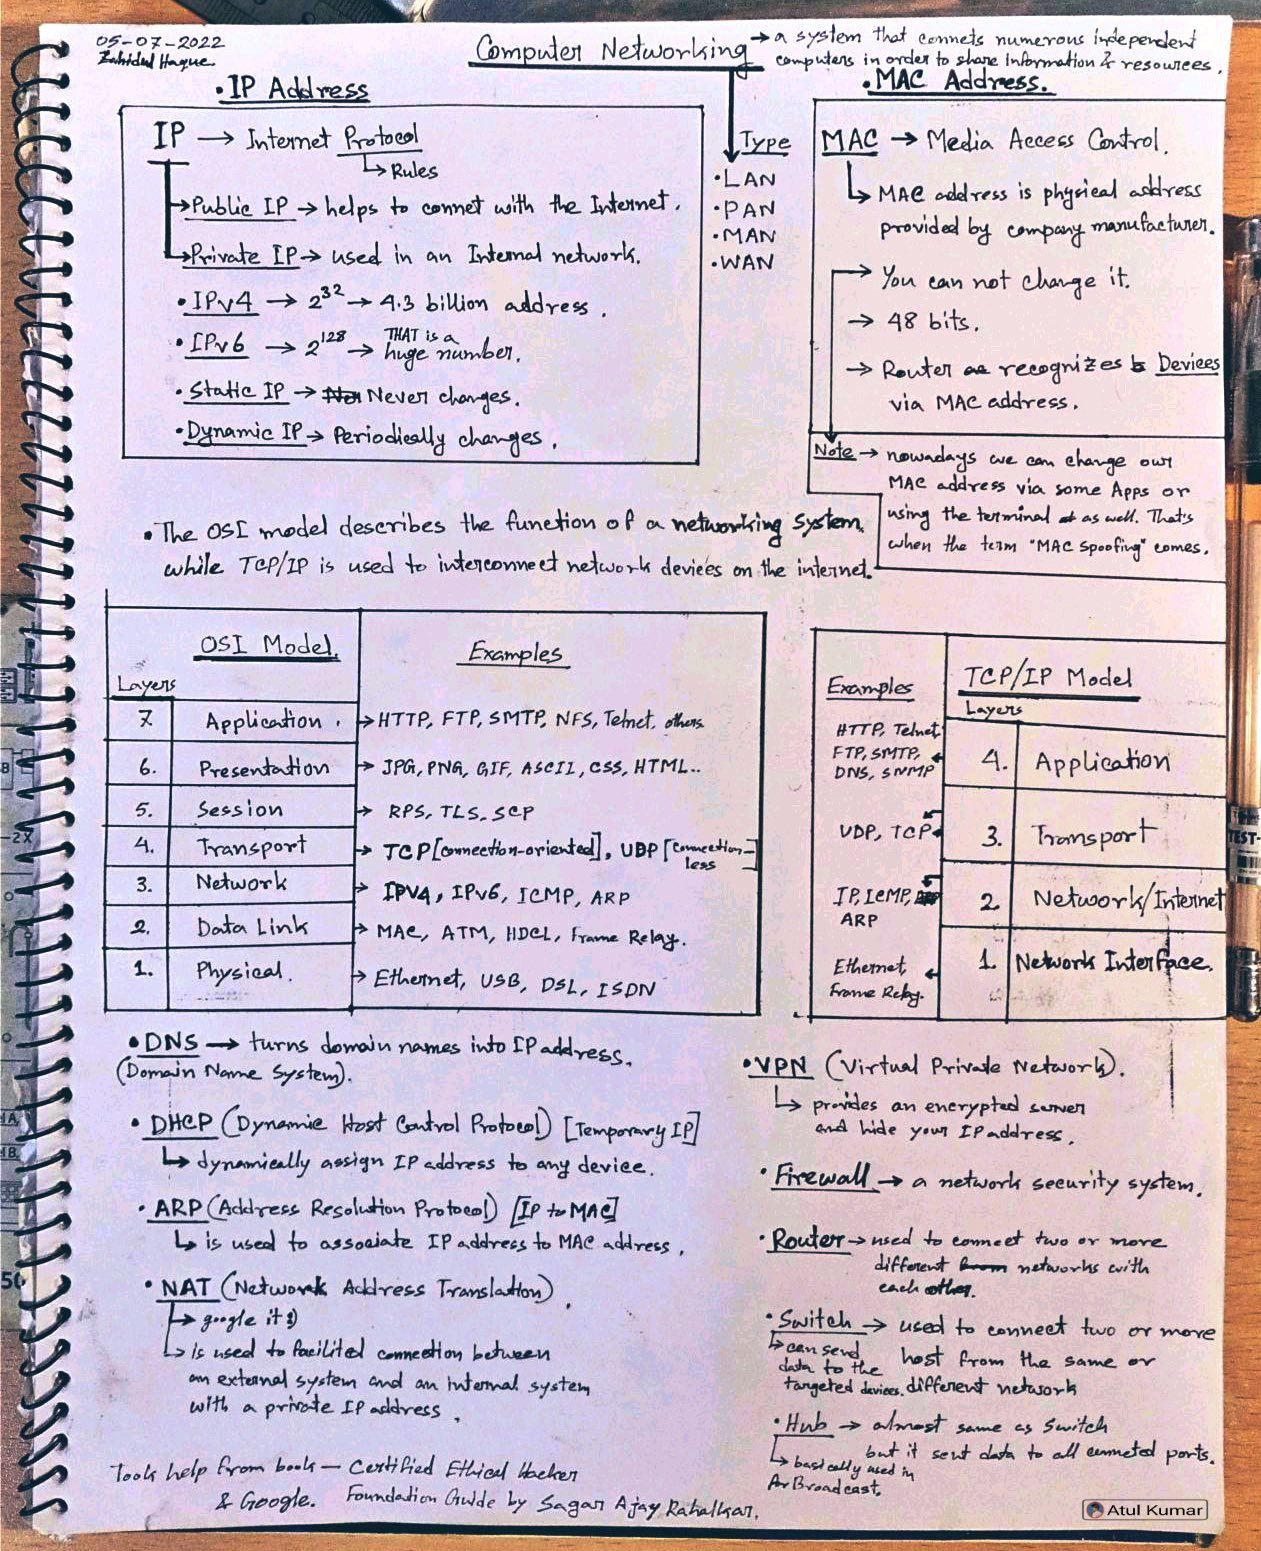 05-07-2022
Zahidul Haque
Computer Networking → a system that connets numerous independent
computers in order to share information & resources.
• IP Address
IP → Internet Protocol
↳ Rules
→ Public IP → helps to connet with the Internet.
→ Private IP → used in an Internal network.
• IPv4 → 2^32 → 4.3 billion address.
• IPv6 → 2^128 → THAT is a
huge number.
• Static IP → Never changes.
• Dynamic IP → Periodically changes.
Type
• LAN
• PAN
• MAN
• WAN
• MAC Address.
MAC → Media Access Control.
↳ MAC address is physical address
provided by company manufacturer.
→ You can not change it.
→ 48 bits.
→ Router recognizes Devices
via MAC address.
Note → nowadays we can change our
MAC address via some Apps or
using the terminal as well. That's
when the term "MAC spoofing" comes.
• The OSI model describes the function of a networking system.
while TCP/IP is used to interconnect network devices on the internet.
OSI Model. Examples
Layers
7. Application. → HTTP, FTP, SMTP, NFS, Telnet, others
6. Presentation → JPG, PNG, GIF, ASCII, CSS, HTML..
5. Session → RPS, TLS, SCP
4. Transport → TCP [connection-oriented], UDP [connection-
less]
3. Network → IPV4, IPv6, ICMP, ARP
2. Data Link → MAC, ATM, HDCL, Frame Relay.
1. Physical. → Ethernet, USB, DSL, ISDN
Examples TCP/IP Model
Layers
HTTP, Telnet
FTP, SMTP,
DNS, SNMP
4. Application
UDP, TCP 3. Transport
IP, ICMP,
ARP
2. Network/Internet
Ethernet,
Frame Relay.
1. Network Interface.
• DNS → turns domain names into IP address.
(Domain Name System).
• DHCP (Dynamic Host Control Protocol) [Temporary IP]
↳ dynamically assign IP address to any device.
• ARP (Address Resolution Protocol) [IP to MAC]
↳ is used to associate IP address to MAC address.
• NAT (Network Address Translation).
→ google it :)
↳ is used to facilited connection between
an external system and an internal system
with a private IP address.
• VPN (Virtual Private Network).
↳ provides an encrypted server
and hide your IP address.
• Firewall → a network security system.
• Router → used to connect two or more
different networks with
each other.
• Switch → used to connect two or more
host from the same or
different network
↳ can send
data to the
targeted devices.
• Hub → almost same as Switch
but it sent data to all connected ports.
↳ basically used in
Broadcast.
Took help from book — Certified Ethical Hacker
& Google. Foundation Guide by Sagar Ajay Rahalkar.
Atul Kumar
TEST-